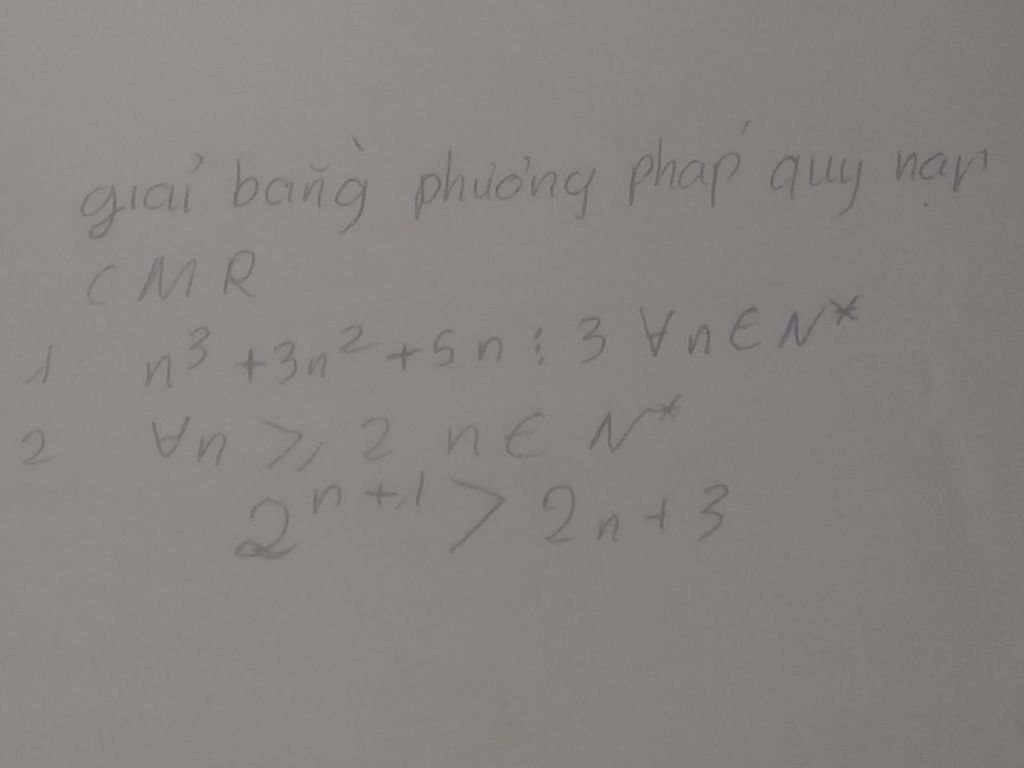 giải bằng phương pháp quy nạp
CMR
1. n³ + 3n² + 5n ⋮ 3 ∀n ∈ N*
2 ∀n ⩾ 2 n ∈ N*
2ⁿ⁺¹ > 2n + 3